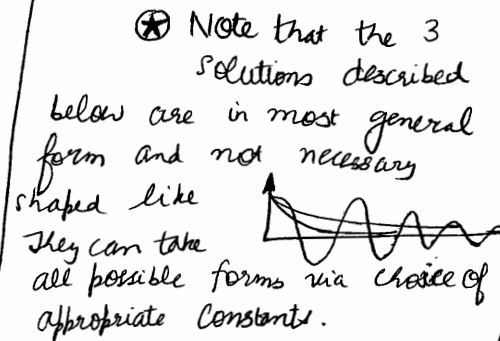 Note that the 3
solutions described
below are in most general
form and not necessary
shaped like
They can take
all possible forms via choice of
appropriate constants.